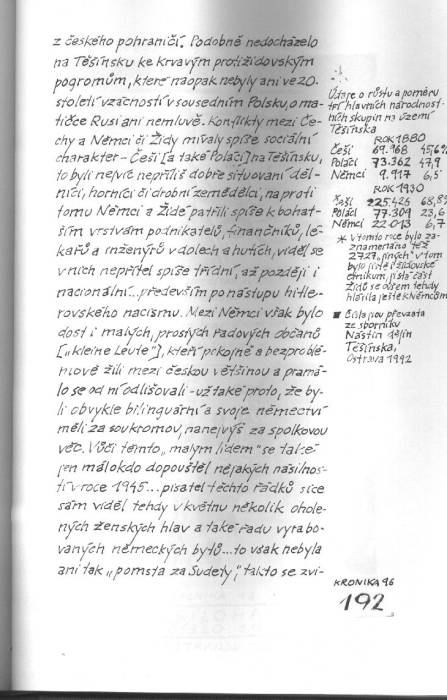 z českého pohraničí. Podobně nedocházelo
na Těšínsku ke krvavým protižidovským
pogromům, které naopak nebyly ani ve 20.
století vzácností v sousedním Polsku, o ma-
tičce Rusi ani nemluvě. Konflikty mezi Če-
chy a Němci či Židy mívaly spíše sociální
charakter – Češi [a také Poláci] na Těšínsku,
to byli nejvíc nepříliš dobře situovaní děl-
níci, horníci či drobní zemědělci, naproti
tomu Němci a Židé patřili spíše k bohat-
ším vrstvám podnikatelů, finančníků, lé-
kařů a inženýrů v dolech a hutích, viděl se
v nich nepřítel spíše třídní, až později i
nacionální... především po nástupu hitle-
rovského nacismu. Mezi Němci však bylo
dost i malých, prostých řadových občanů
[„kleine Leute"], kteří pokojně a bezproblé-
mově žili mezi českou většinou a pramá-
lo se od ní odlišovali – už také proto, že by-
li obvykle bilinguární a svoje němectví
měli za soukromou, nanejvýš za spolkovou
věc. Vůči těmto „malým lidem" se také
jen málokdo dopouštěl nějakých násilnos-
tí v roce 1945... pisatel těchto řádků sice
sám viděl tehdy v květnu několik ohole-
ných ženských hlav a také řadu vyrabo-
vaných německých bytů... to však nebyla
ani tak „pomsta za Sudety", takto se zvi-
Údaje o růstu a poměru
tří hlavních národnost-
ních skupin na území
Těšínska
ROK 1880
Češi 69.168 45,6%
Poláci 73.362 47,9
Němci 9.917 6,5
ROK 1930
Češi 225.426 68,8%
Poláci 77.309 23,6
Němci 22.013 6,7
* v tomto roce bylo za-
znamenáno též
2727 „jiných" v tom
bylo jistě i židovské
etnikum, jistá část
Židů se ovšem tehdy
hlásila ještě k Němcům
■ Čísla jsou převzata
ze sborníku
Nástin dějin
Těšínska,
Ostrava 1992
KRONIKA 96
192